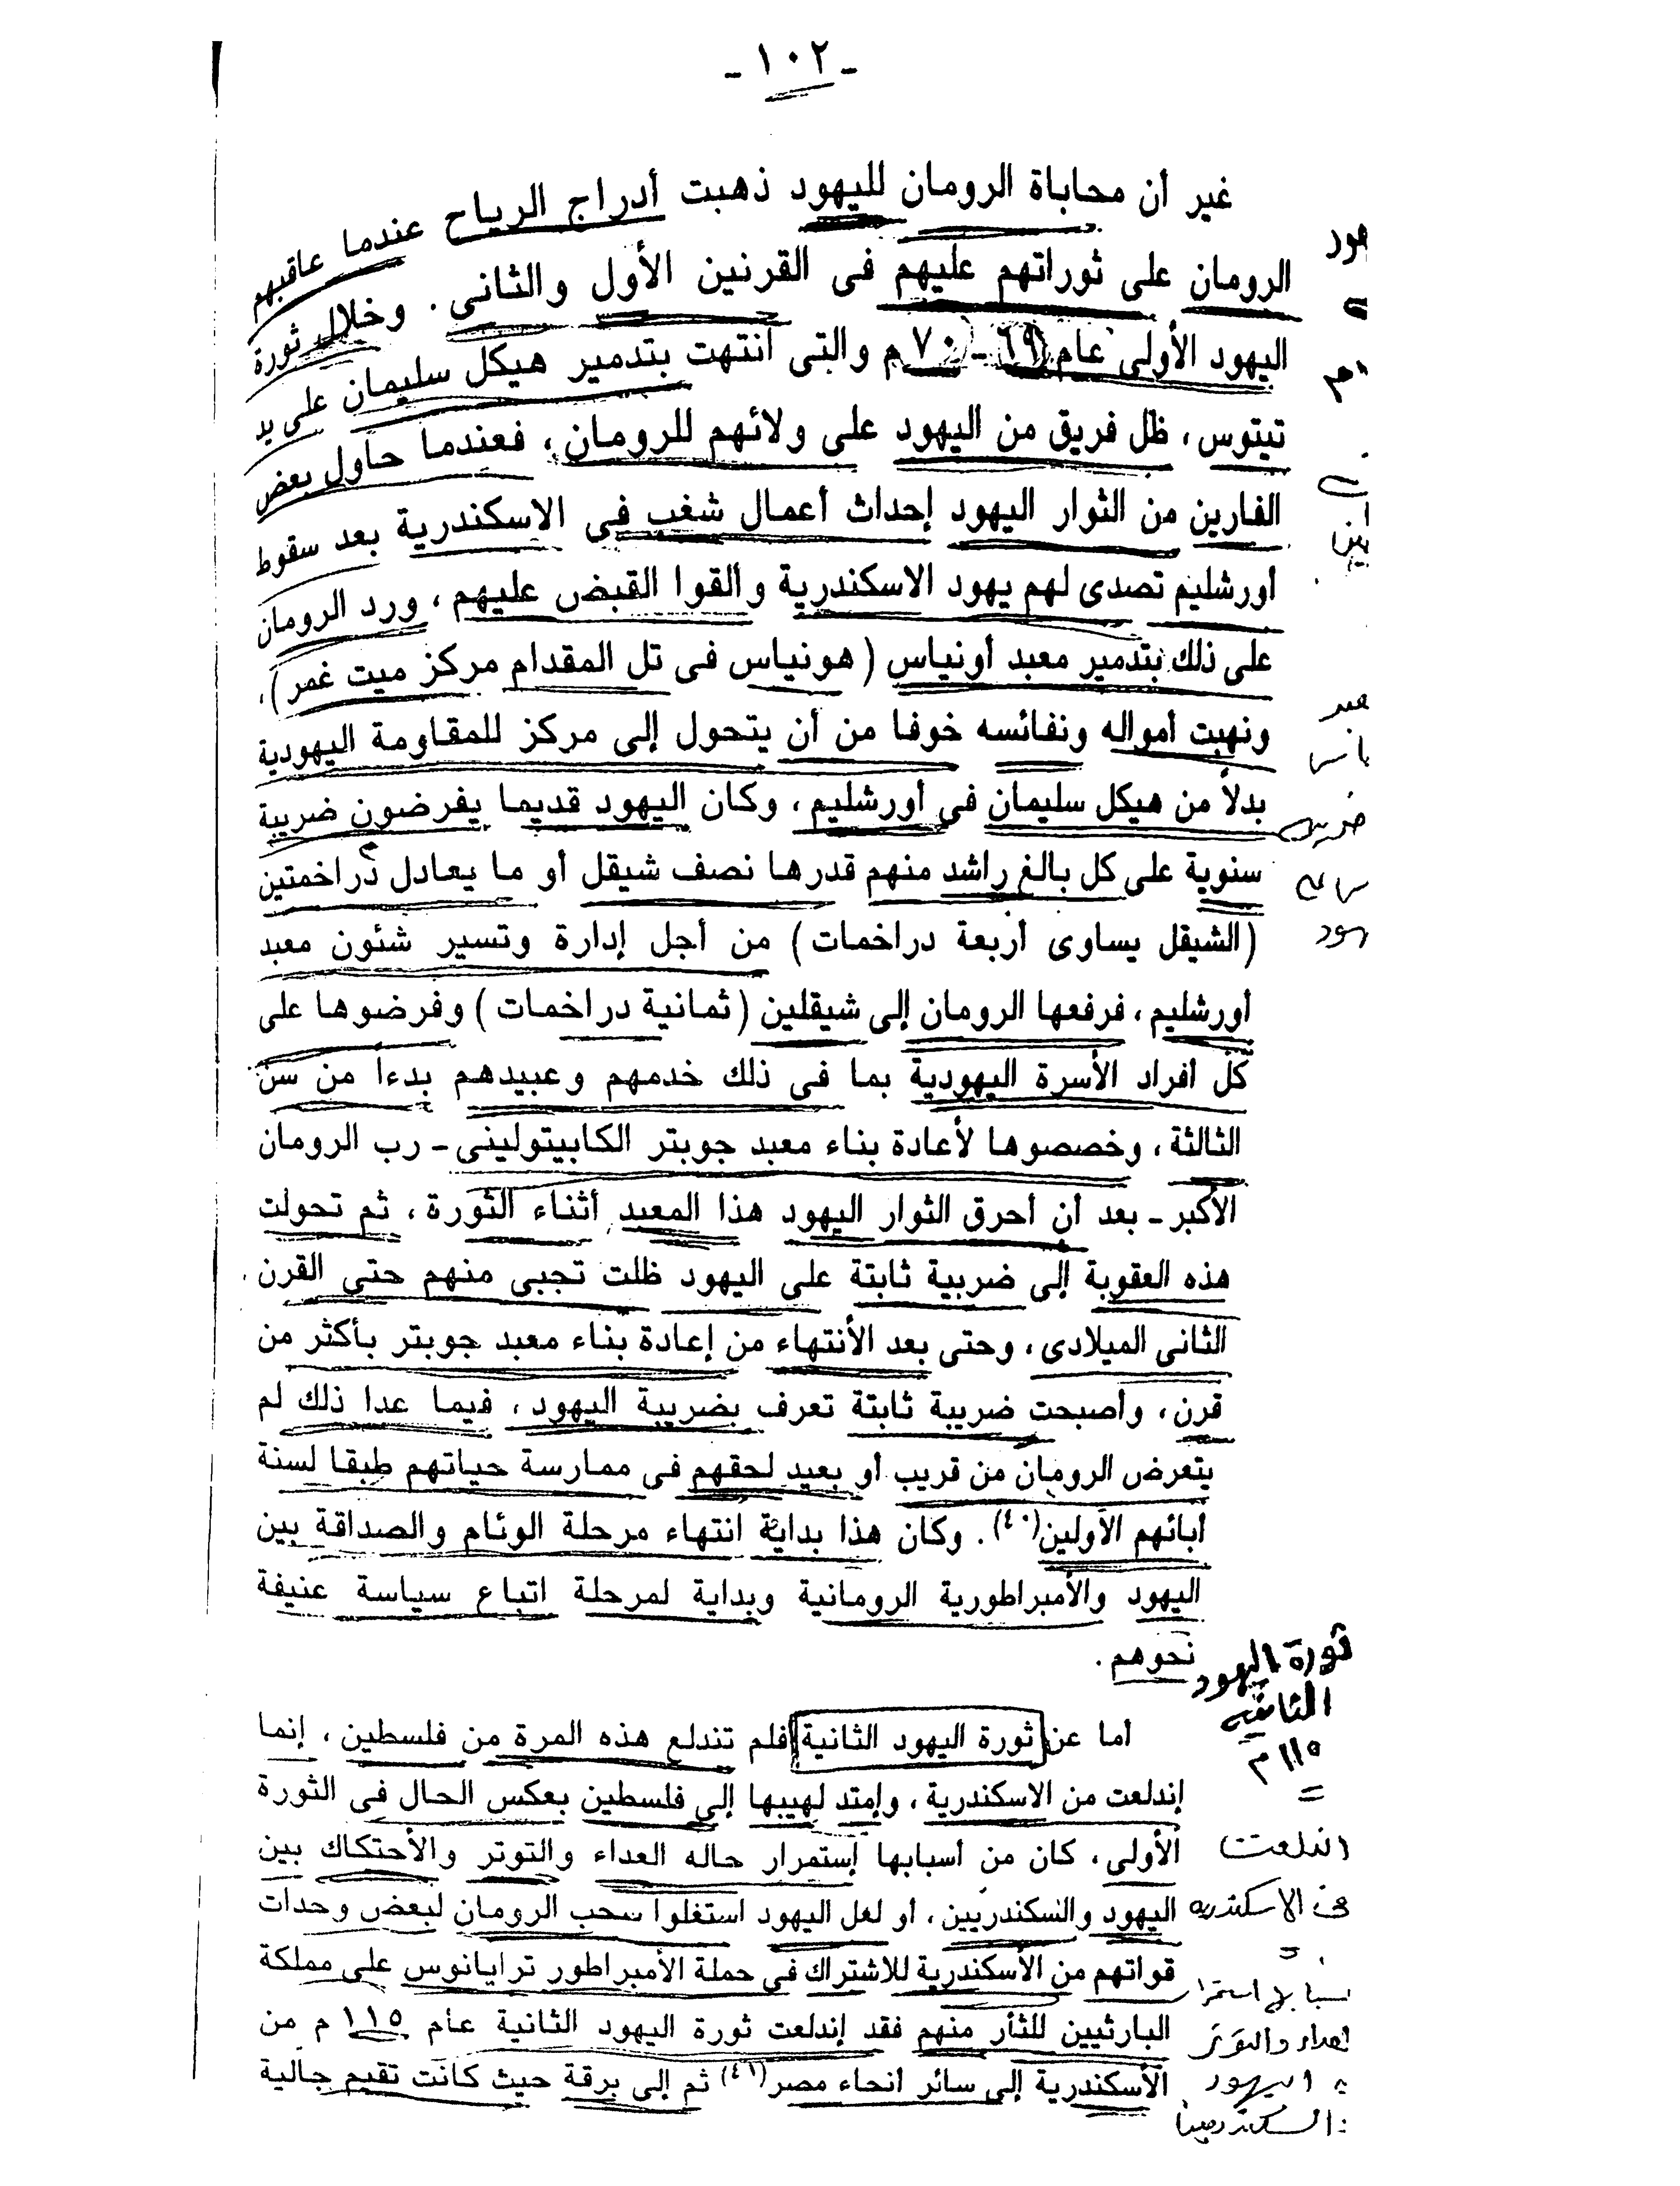 - ١٠٢ -
غير أن محاباة الرومان لليهود ذهبت أدراج الرياح عندما عاقبهم
الرومان على ثوراتهم عليهم فى القرنين الأول والثانى . وخلال ثورة
اليهود الأولى عام ٦٩ - ٧٠ م والتى انتهت بتدمير هيكل سليمان على يد
تيتوس ، ظل فريق من اليهود على ولائهم للرومان ، فعندما حاول بعض
الفارين من الثوار اليهود إحداث أعمال شغب فى الاسكندرية بعد سقوط
أورشليم تصدى لهم يهود الاسكندرية وألقوا القبض عليهم ، ورد الرومان
على ذلك بتدمير معبد أونياس ( هونياس فى تل المقدام مركز ميت غمر ) ،
ونهبت أمواله ونفائسه خوفا من أن يتحول إلى مركز للمقاومة اليهودية
بدلاً من هيكل سليمان فى أورشليم ، وكان اليهود قديما يفرضون ضريبة
سنوية على كل بالغ راشد منهم قدرها نصف شيقل أو ما يعادل دراخمتين
( الشيقل يساوى أربعة دراخمات ) من أجل إدارة وتسير شئون معبد
أورشليم ، فرفعها الرومان إلى شيقلين ( ثمانية دراخمات ) وفرضوها على
كل أفراد الأسرة اليهودية بما فى ذلك خدمهم وعبيدهم بدءاً من سن
الثالثة ، وخصصوها لأعادة بناء معبد جوبتر الكابيتولينى - رب الرومان
الأكبر - بعد أن أحرق الثوار اليهود هذا المعبد أثناء الثورة ، ثم تحولت
هذه العقوبة إلى ضريبة ثابتة على اليهود ظلت تجبى منهم حتى القرن
الثانى الميلادى ، وحتى بعد الأنتهاء من إعادة بناء معبد جوبتر بأكثر من
قرن ، وأصبحت ضريبة ثابتة تعرف بضريبة اليهود ، فيما عدا ذلك لم
يتعرض الرومان من قريب أو بعيد لحقهم فى ممارسة حياتهم طبقا لسنة
أبائهم الأولين (٤٠) . وكان هذا بداية انتهاء مرحلة الوئام والصداقة بين
اليهود والأمبراطورية الرومانية وبداية لمرحلة اتباع سياسة عنيفة
نحوهم .
ثورة اليهود
الثانية
١١٥ م
أما عن ثورة اليهود الثانية فلم تندلع هذه المرة من فلسطين ، إنما
إندلعت من الاسكندرية ، وإمتد لهيبها إلى فلسطين بعكس الحال فى الثورة
الأولى ، كان من أسبابها إستمرار حاله العداء والتوتر والأحتكاك بين
اليهود والسكندريين ، أو لعل اليهود استغلوا سحب الرومان لبعض وحدات
قواتهم من الأسكندرية للاشتراك فى حملة الأمبراطور ترايانوس على مملكة
البارثيين للثأر منهم فقد إندلعت ثورة اليهود الثانية عام ١١٥ م من
الأسكندرية إلى سائر أنحاء مصر (٤١) ثم إلى برقة حيث كانت تقيم جالية
اندلعت
من الاسكندريه
اليهود
السكندريين